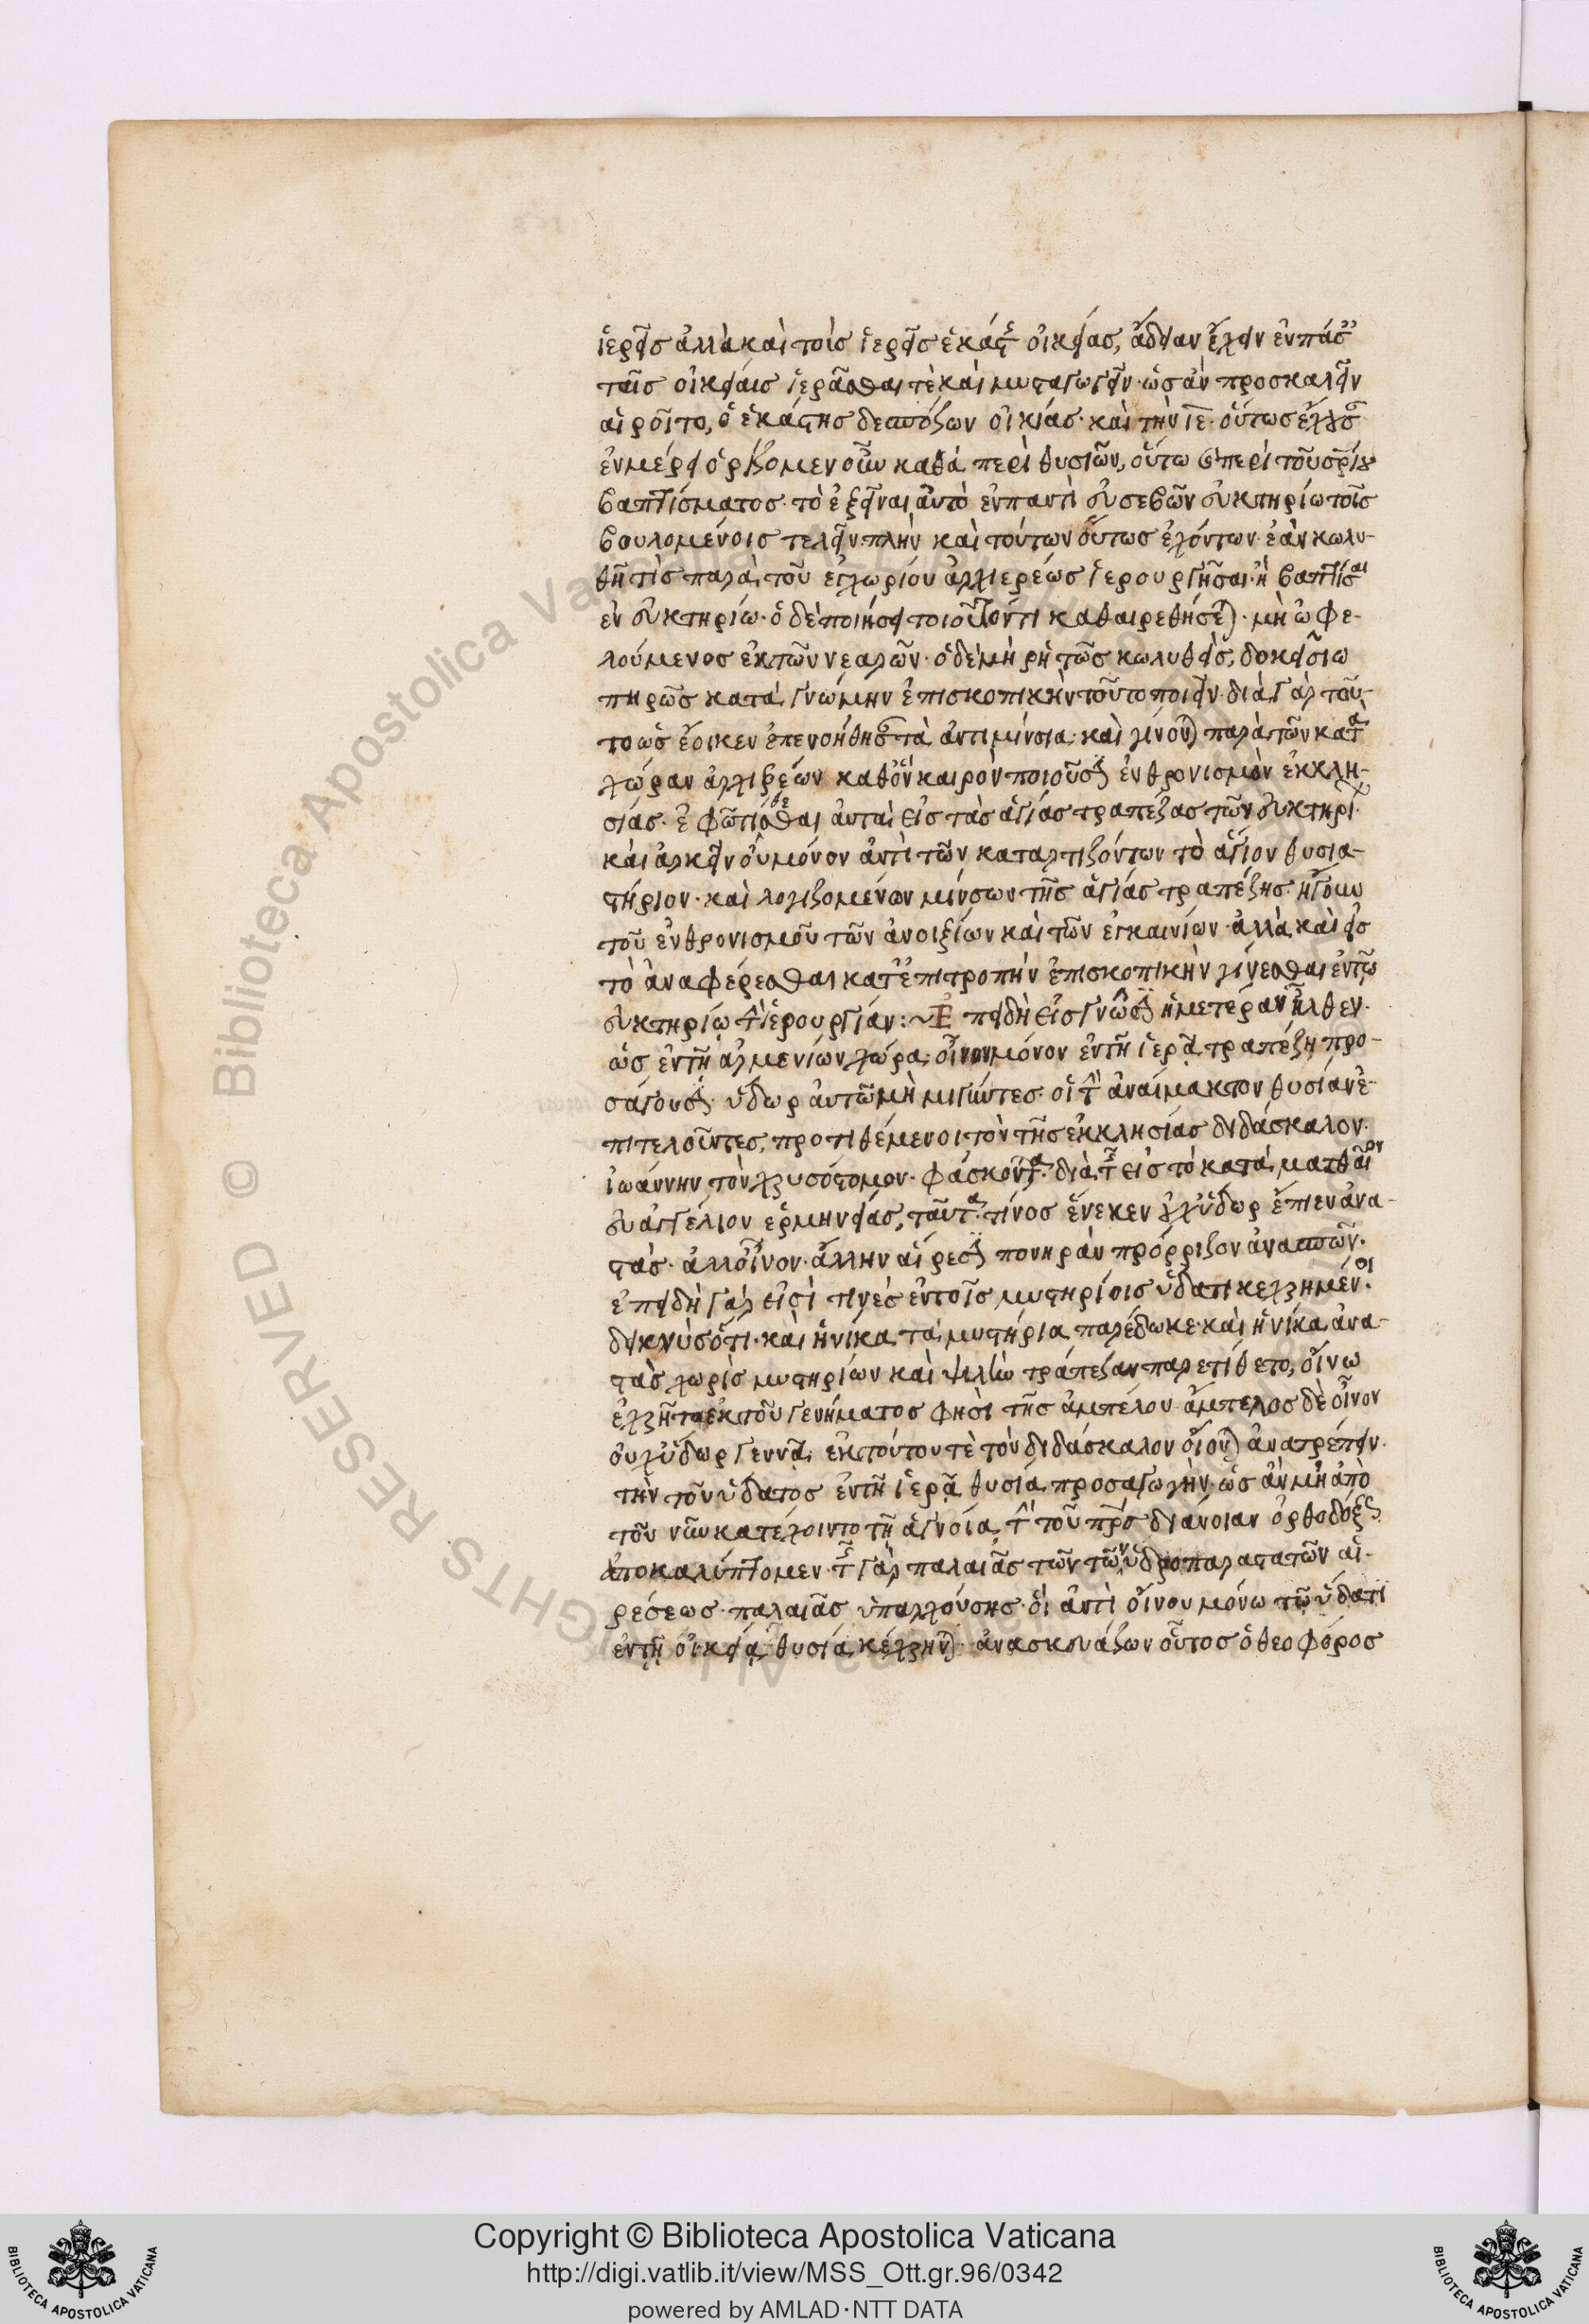 ἱερεῖς ἀλλὰ καὶ τοῖς ἱερεῖς ἑκάστης οἰκείας, ἄδειαν ἔχειν ἐν πάσαις
ταῖς οἰκείαις ἱερᾶσθαι τὲ καὶ μυσταγωγεῖν· ὡς ἂν προσκαλεῖν
αἱροῖτο, ὁ ἑκάστης δεσπόζων οἰκίας· καὶ τὴν ιε· οὕτως ἔχουσαν
ἐν μέρει ὁριζομεν οὖν καθὰ περὶ θυσιῶν, οὕτω καὶ περὶ τοῦ σωτηρίου
βαπτίσματος· τὸ ἐξεῖναι αὐτὸ ἐν παντὶ εὐσεβῶν εὐκτηρίω τοῖς
βουλομένοις τελεῖν· πλὴν καὶ τούτων οὕτως ἐχόντων· ἐὰν κωλυ-
θῆ τὶς παρὰ τοῦ ἐγχωρίου ἀρχιερέως ἱερουργῆσαι· ἢ βαπτίσαι
ἐν εὐκτηρίω· ὁ δὲ ποιήσει τοιοῦτόν τι καθαιρεθήσεται· μὴ ὠφε-
λούμενος ἐκ τῶν νεαρῶν· ὁ δὲ μὴ ῥητῶς κωλυθεὶς, δοκεῖ σιω
πηρῶς κατὰ γνώμην ἐπισκοπικὴν τοῦτο ποιεῖν· διὰ γὰρ τοῦ-
το ὡς ἔοικεν ἐπενοήθησαν τὰ ἀντιμίνσια· καὶ γίνονται παρὰ τῶν κατὰ
χώραν ἀρχιερέων καθὃν καιρὸν ποιοῦσιν ἐνθρονισμὸν ἐκκλη-
σίας· ἐφῶτίθεσθαι αὐτὰ εἰς τὰς ἁγίας τραπέζας τῶν εὐκτηρίων·
καὶ ἀρκεῖν οὐ μόνον ἀντὶ τῶν καταρτιζόντων τὸ ἅγιον θυσια-
στήριον· καὶ λογιζομένων μίνσων τῆς ἁγίας τραπέζης· ἤγουν
τοῦ ἐνθρονισμοῦ τῶν ἀνοιξίων καὶ τῶν ἐγκαινίων· ἀλλὰ καὶ εἰς
τὸ ἀναφέρεσθαι κατ᾽ ἐπιτροπὴν ἐπισκοπικὴν γίνεσθαι ἐν τῶ
εὐκτηρίω τὴν ἱερουργίαν :~ Ἐπειδὴ εἰς γνῶσιν ἡμετέραν ἦλθεν·
ὡς ἐν τῆ ἀρμενίων χώρα, οἶνον μόνον ἐν τῆ ἱερᾶ τραπέζη προ-
σάγουσιν· ὕδωρ αὐτῶ μὴ μιγνύντες· οἱ τὴν ἀναίμακτον θυσίαν ἐ-
πιτελοῦντες, προτιθέμενοι τὸν τῆς ἐκκλησίας διδάσκαλον·
ἰωάννην τὸν χρυσόστομον· φάσκοντα· διὰ τῆς εἰς τὸ κατὰ ματθαῖον
εὐαγγέλιον ἑρμηνείας, ταῦτα· τίνος ἕνεκεν οὐχ ὕδωρ ἔπιεν ἀνα-
στὰς· ἀλλοἶνον· ἄλλην αἵρεσιν πονηρὰν πρόρριζον ἀνασπῶν·
ἐπειδὴ γάρ εἰσί τινες ἐν τοῖς μυστηρίοις ὕδατι κεχρημένοι·
δεικνὺς ὅτι· καὶ ἡνίκα τὰ μυστήρια παρέδωκε· καὶ ἡνίκα ἀνα-
στὰς χωρὶς μυστηρίων καὶ ψιλὴν τράπεζαν παρετίθετο, οἴνω
ἐχρῆτο ἐκ τοῦ γενήματος φησὶ τῆς ἀμπέλου· ἄμπελος δὲ οἶνον
οὐχ ὕδωρ γεννᾶ. ἐκ τούτου τὲ τὸν διδάσκαλον οἴονται ἀνατρέπειν·
τὴν τοῦ ὕδατος ἐν τῆ ἱερᾶ θυσία προσαγωγὴν· ὡς ἂν μὴ ἀπὸ
τοῦ νῦν κατέχοιντο τῆ ἀγνοία, τὴν τοῦ πατρὸς διάνοιαν ὀρθοδόξως
ἀποκαλύπτομεν· τῆς γὰρ παλαιᾶς τῶν τῶν ὑδροπαραστατῶν αἱ-
ρέσεως· παλαιᾶς ὑπαρχούσης· οἳ ἀντὶ οἴνου μόνω τῶ ὕδατι
ἐν τῆ οἰκεία θυσία κέχρηνται· ἀνασκευάζων οὗτος ὁ θεοφόρος
Copyright © Biblioteca Apostolica Vaticana
http://digi.vatlib.it/view/MSS_Ott.gr.96/0342
powered by AMLAD·NTT DATA